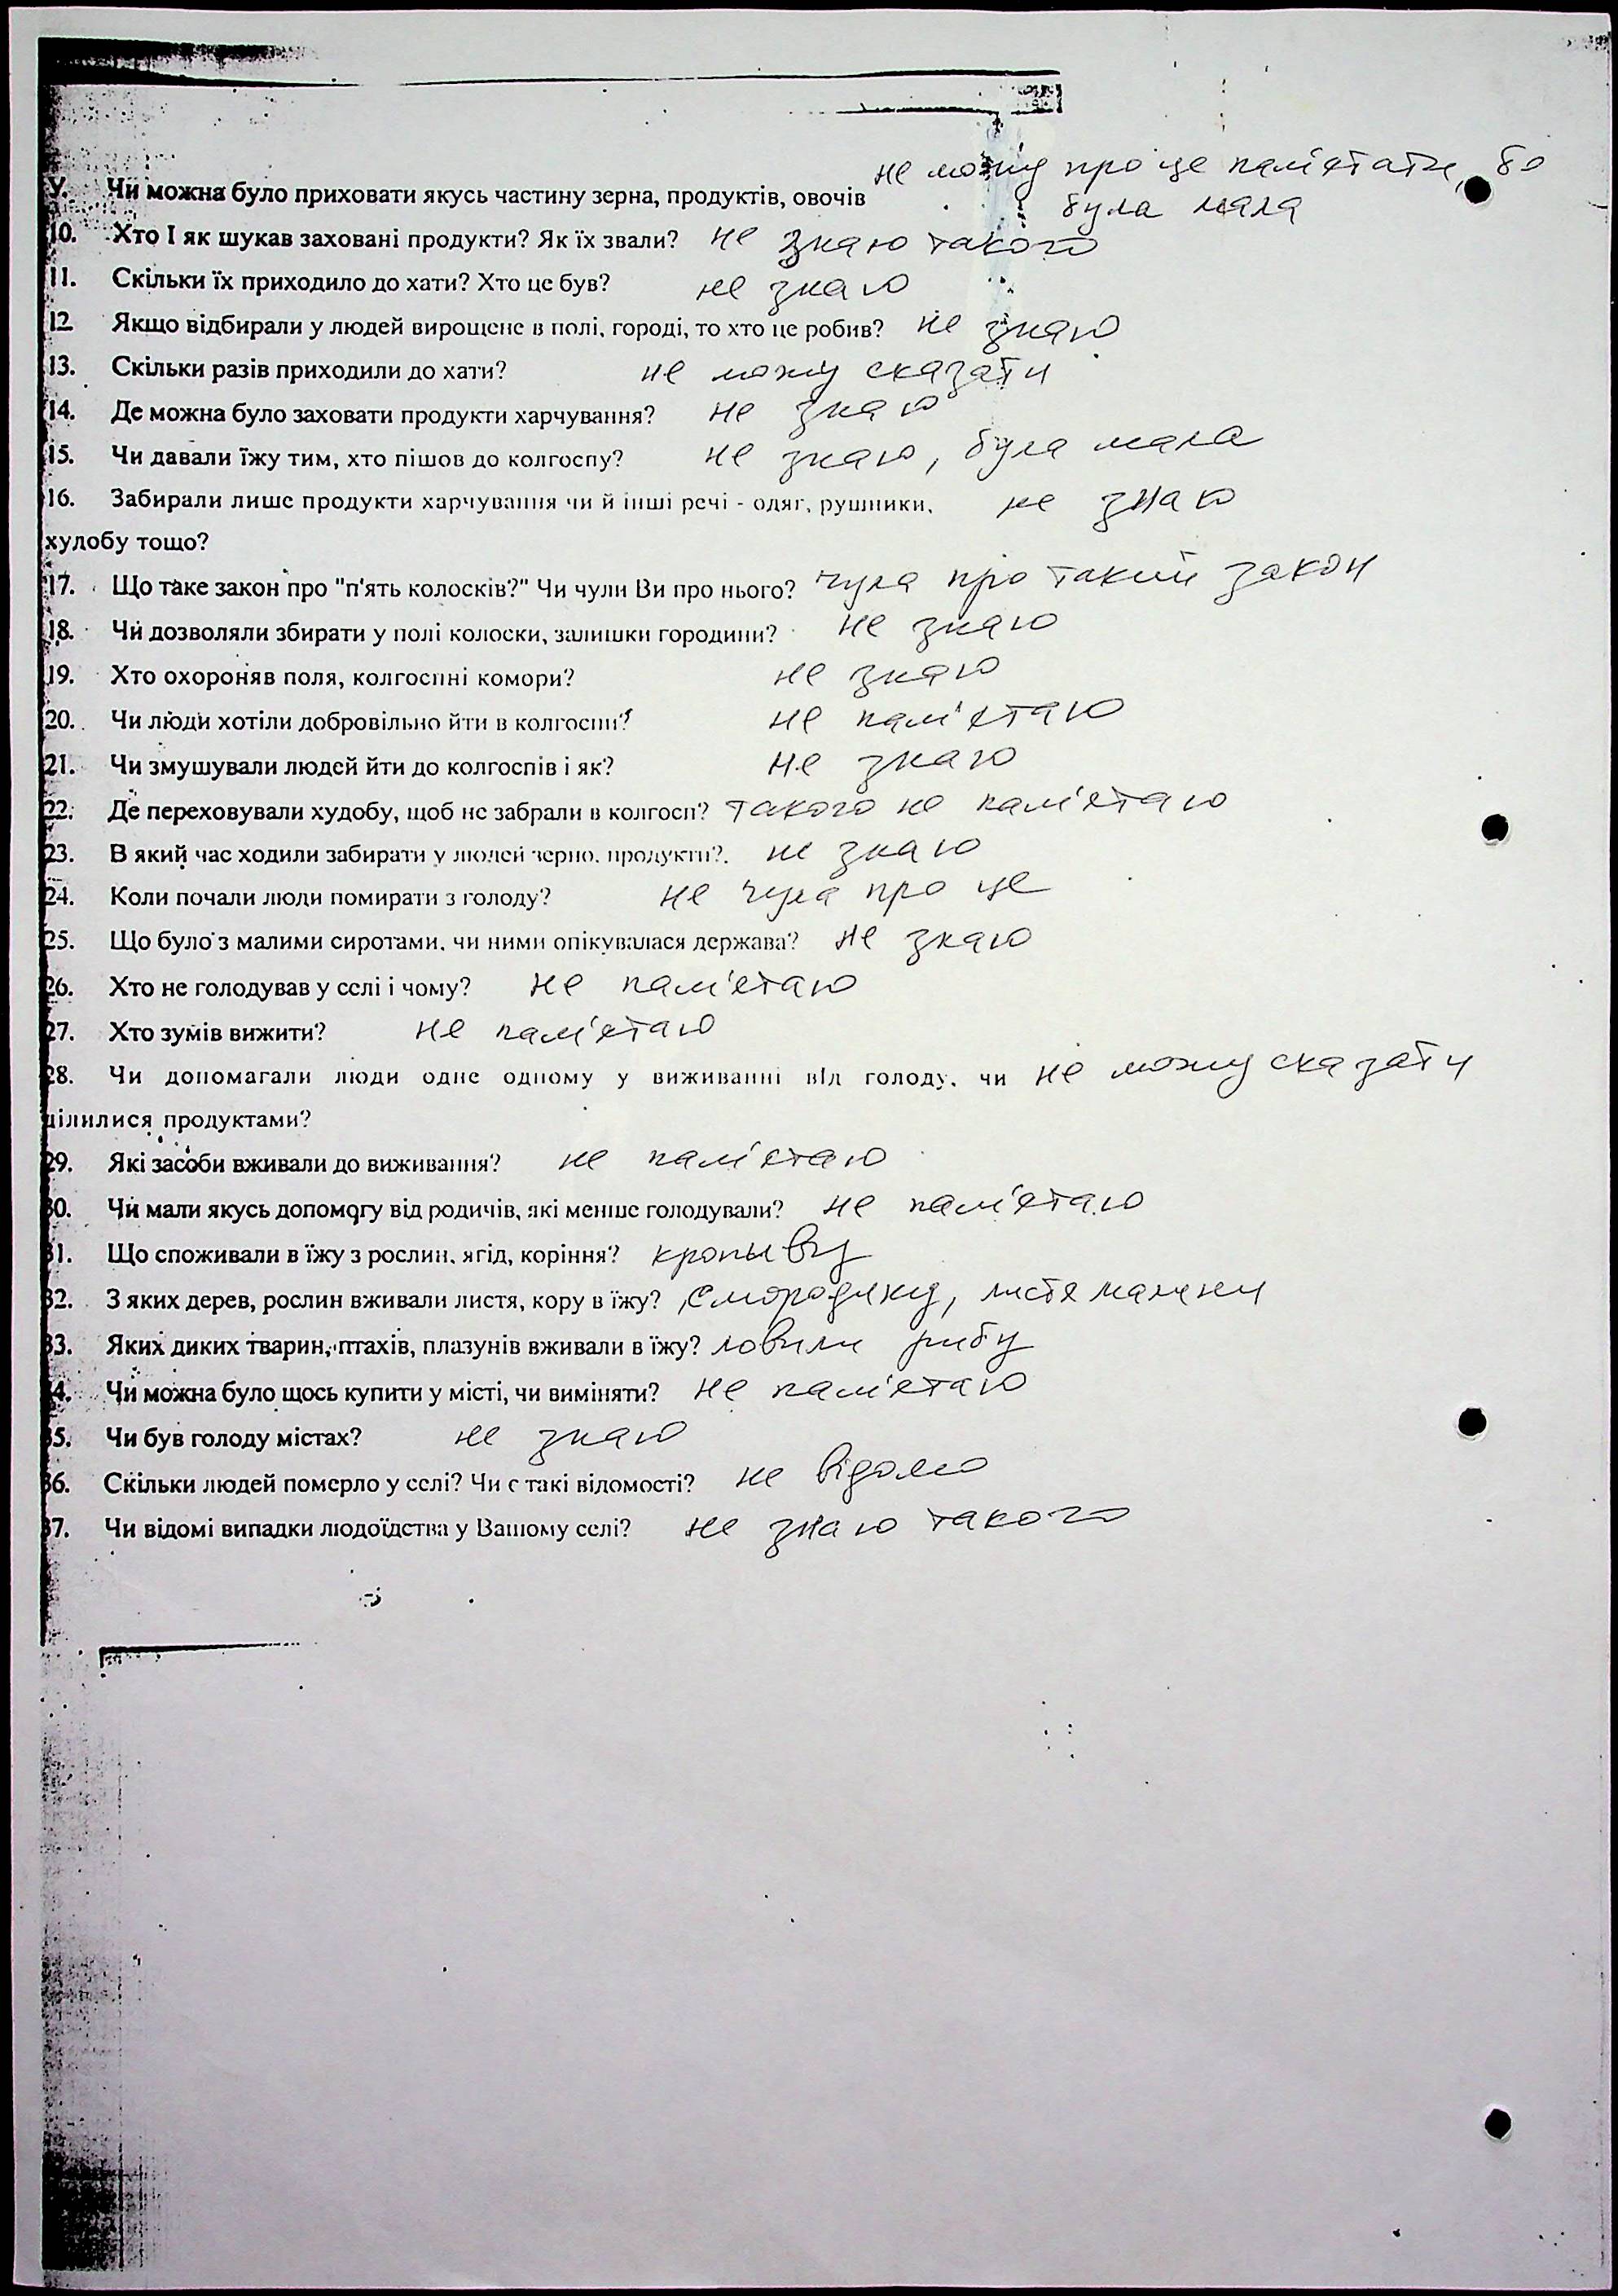 9. Чи можна було приховати якусь частину зерна, продуктів, овочів не можу про це пам'ятати, бо
була мала
10. Хто І як шукав заховані продукти? Як їх звали? не знаю такого
11. Скільки їх приходило до хати? Хто це був? не знаю
12. Якщо відбирали у людей вирощене в полі, городі, то хто це робив? не знаю
13. Скільки разів приходили до хати? не можу сказати
14. Де можна було заховати продукти харчування? не знаю
15. Чи давали їжу тим, хто пішов до колгоспу? не знаю, була мала
16. Забирали лише продукти харчування чи й інші речі - одяг, рушники, не знаю
худобу тощо?
17. Що таке закон про "п'ять колосків?" Чи чули Ви про нього? чула про такий закон
18. Чи дозволяли збирати у полі колоски, залишки городини? не знаю
19. Хто охороняв поля, колгоспні комори? не знаю
20. Чи люди хотіли добровільно йти в колгоспи? не пам'ятаю
21. Чи змушували людей йти до колгоспів і як? не знаю
22. Де переховували худобу, щоб не забрали в колгосп? такого не пам'ятаю
23. В який час ходили забирати у людей зерно, продукти?. не знаю
24. Коли почали люди помирати з голоду? не чула про це
25. Що було з малими сиротами, чи ними опікувалася держава? не знаю
26. Хто не голодував у селі і чому? не пам'ятаю
27. Хто зумів вижити? не пам'ятаю
28. Чи допомагали люди одне одному у виживанні від голоду, чи не можу сказати
ділилися продуктами?
29. Які засоби вживали до виживання? не пам'ятаю
30. Чи мали якусь допомогу від родичів, які менше голодували? не пам'ятаю
31. Що споживали в їжу з рослин, ягід, коріння? кропыву
32. З яких дерев, рослин вживали листя, кору в їжу? смородину, листя малини
33. Яких диких тварин, птахів, плазунів вживали в їжу? ловили рибу
34. Чи можна було щось купити у місті, чи виміняти? не пам'ятаю
35. Чи був голоду містах? не знаю
36. Скільки людей померло у селі? Чи є такі відомості? не відомо
37. Чи відомі випадки людоїдства у Вашому селі? не знаю такого